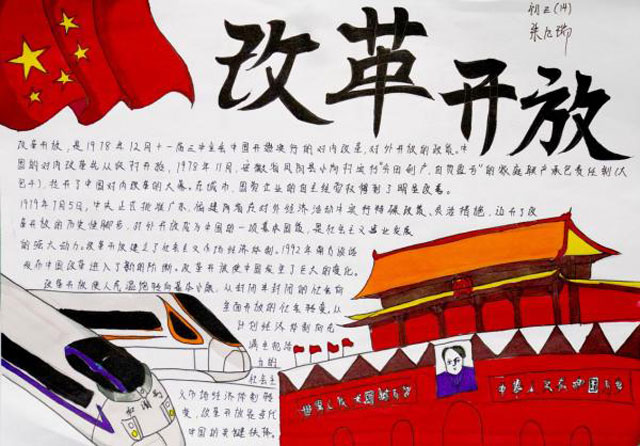 初三(14)
改革开放
改革开放，是1978年12月十一届三中全会中国开始实行的对内改革，对外开放的政策。中
国的对内改革先从农村开始，1978年11月，安徽省凤阳县小岗村实行“分田到户，自负盈亏”的家庭联产承包责任制(大
包干)，拉开了中国对内改革的大幕。在城市，国营企业的自主经营权得到了明显改善。
1979年7月5日，中央正式批准广东、福建两省在对外经济活动中实行特殊政策、灵活措施，迈开了改
革开放的历史性脚步，对外开放成为中国的一项基本国策，是社会主义事业发展
的强大动力。改革开放建立了社会主义市场经济体制。1992年南方谈话
发布中国改革进入了新的阶段。改革开放使中国发生了巨大的变化。
改革开放使人民温饱转向基本小康，从封闭半封闭的社会向
全面开放的社会转变。从
计划经济体制向充
满生机活
力的
社会主
义市场经济体制转
变，改革开放是当代
中国的关键抉择。
和谐号
世界人民大团结万岁
中华人民共和国万岁